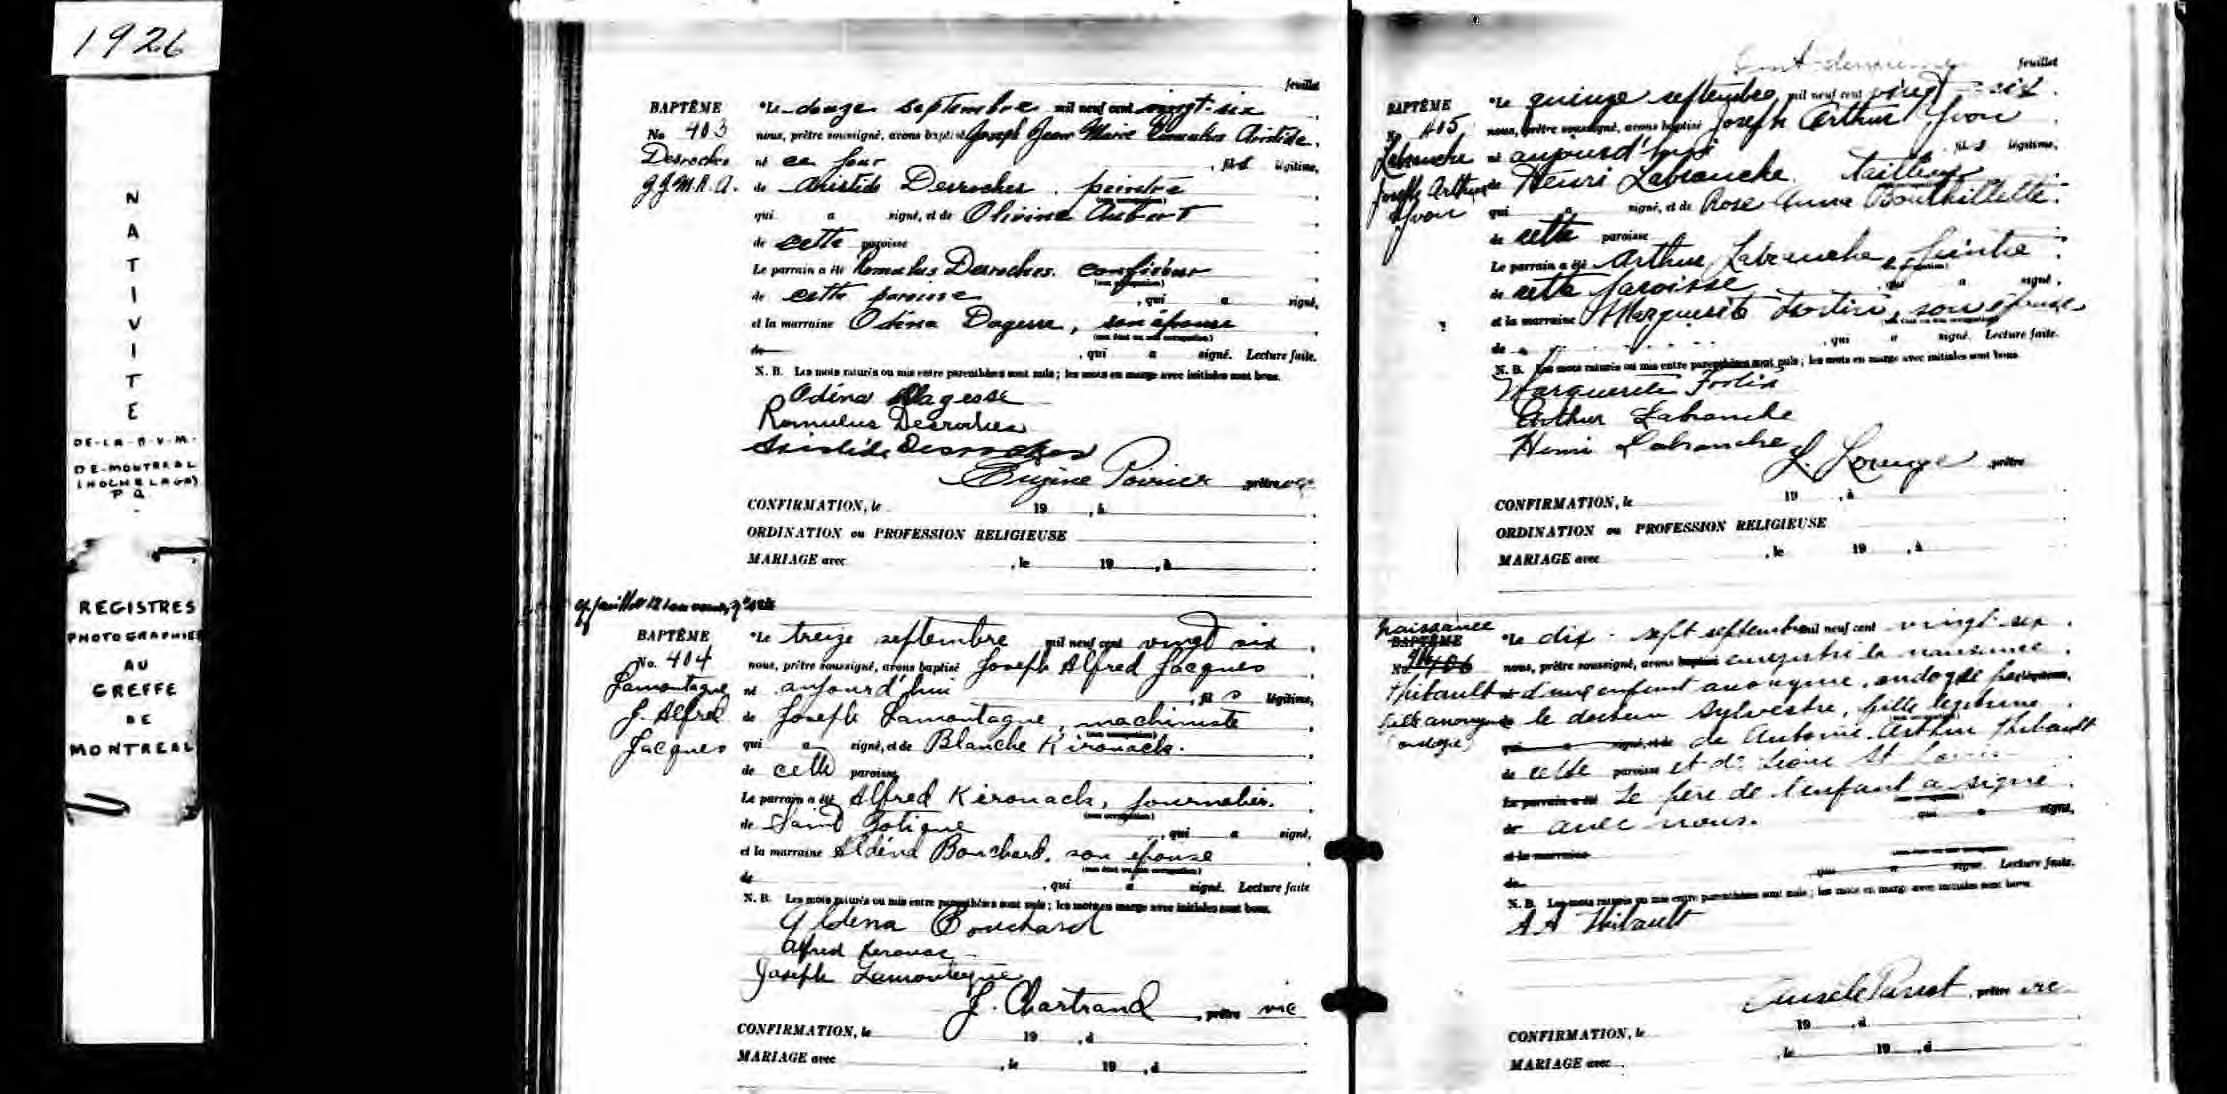 1926
NATIVITE
DE-LA-B-V-M-
DE-MONTREAL
(HOCHELAGA)
P Q
REGISTRES
PHOTOGRAPHIES
AU
GREFFE
DE
MONTREAL
feuillet
BAPTÊME
No 403
Desroches
J.J.M.R.A.
Le douze septembre mil neuf cent vingt-six
nous, prêtre soussigné, avons baptisé Joseph Jean Marie Romulus Aristide
né ce jour, fils légitime,
de Aristide Desroches, peintre
(son occupation)
qui a signé, et de Olivine Aubert
de cette paroisse
Le parrain a été Romulus Desroches, confiseur
(son occupation)
de cette paroisse, qui a signé,
et la marraine Odéna Dagesse, son épouse
(son état ou son occupation)
de , qui a signé. Lecture faite.
N. B. Les mots raturés ou mis entre parenthèses sont nuls; les mots en marge avec initiales sont bons.
Odéna Dagesse
Romulus Desroches
Aristide Desroches
Eugène Poirier, prêtre vic
CONFIRMATION, le 19 , à
ORDINATION ou PROFESSION RELIGIEUSE
MARIAGE avec , le 19 , à
BAPTÊME
No. 404
Lamontagne
J. Alfred
Jacques
Le treize septembre mil neuf cent vingt six
nous, prêtre soussigné, avons baptisé Joseph Alfred Jacques
né aujourd'hui, fils légitime,
de Joseph Lamontagne, machiniste
(son occupation)
qui a signé, et de Blanche Kirouack.
de cette paroisse
Le parrain a été Alfred Kirouack, journalier.
(son occupation)
de Saint Zotique, qui a signé,
et la marraine Aldéna Bouchard, son épouse
(son état ou son occupation)
de , qui a signé. Lecture faite
N. B. Les mots raturés ou mis entre parenthèses sont nuls; les mots en marge avec initiales sont bons.
Aldena Bouchard
Alfred Kerouac
Joseph Lamontagne
J. Chartrand, prêtre vic
CONFIRMATION, le 19 , à
MARIAGE avec , le 19 , à
feuillet
BAPTÊME
No 405
Labranche
Joseph Arthur
Yvon
Le quinze septembre mil neuf cent vingt-six.
nous, prêtre soussigné, avons baptisé Joseph Arthur Yvon
né aujourd'hui fils légitime,
de Henri Labranche, tailleur
qui a signé, et de Rose Anna Bouthillette.
de cette paroisse
Le parrain a été Arthur Labranche, peintre
de cette paroisse, qui a signé,
et la marraine Marguerite Fortin, son épouse
de , qui a signé. Lecture faite.
N. B. Les mots raturés ou mis entre parenthèses sont nuls; les mots en marge avec initiales sont bons.
Marguerite Fortin
Arthur Labranche
Henri Labranche
prêtre
CONFIRMATION, le 19 , à
ORDINATION ou PROFESSION RELIGIEUSE
MARIAGE avec , le 19 , à
Naissance
BAPTÊME
No 406
Thibault
fille anonyme
(ondoyée)
Le dix-sept septembre mil neuf cent vingt-six.
nous, prêtre soussigné, avons baptisé enregistré la naissance
d'une enfant anonyme, ondoyée par
le docteur Sylvestre, fille légitime
de Antoine-Arthur Thibault
de cette paroisse et de St Louis
Le parrain a été Le père de l'enfant a signé
de avec nous. qui a signé,
et la marraine
de qui a signé. Lecture faite.
N. B. Les mots raturés ou mis entre parenthèses sont nuls; les mots en marge avec initiales sont bons.
A A Thibault
prêtre vic
CONFIRMATION, le 19 , à
MARIAGE avec , le 19 , à